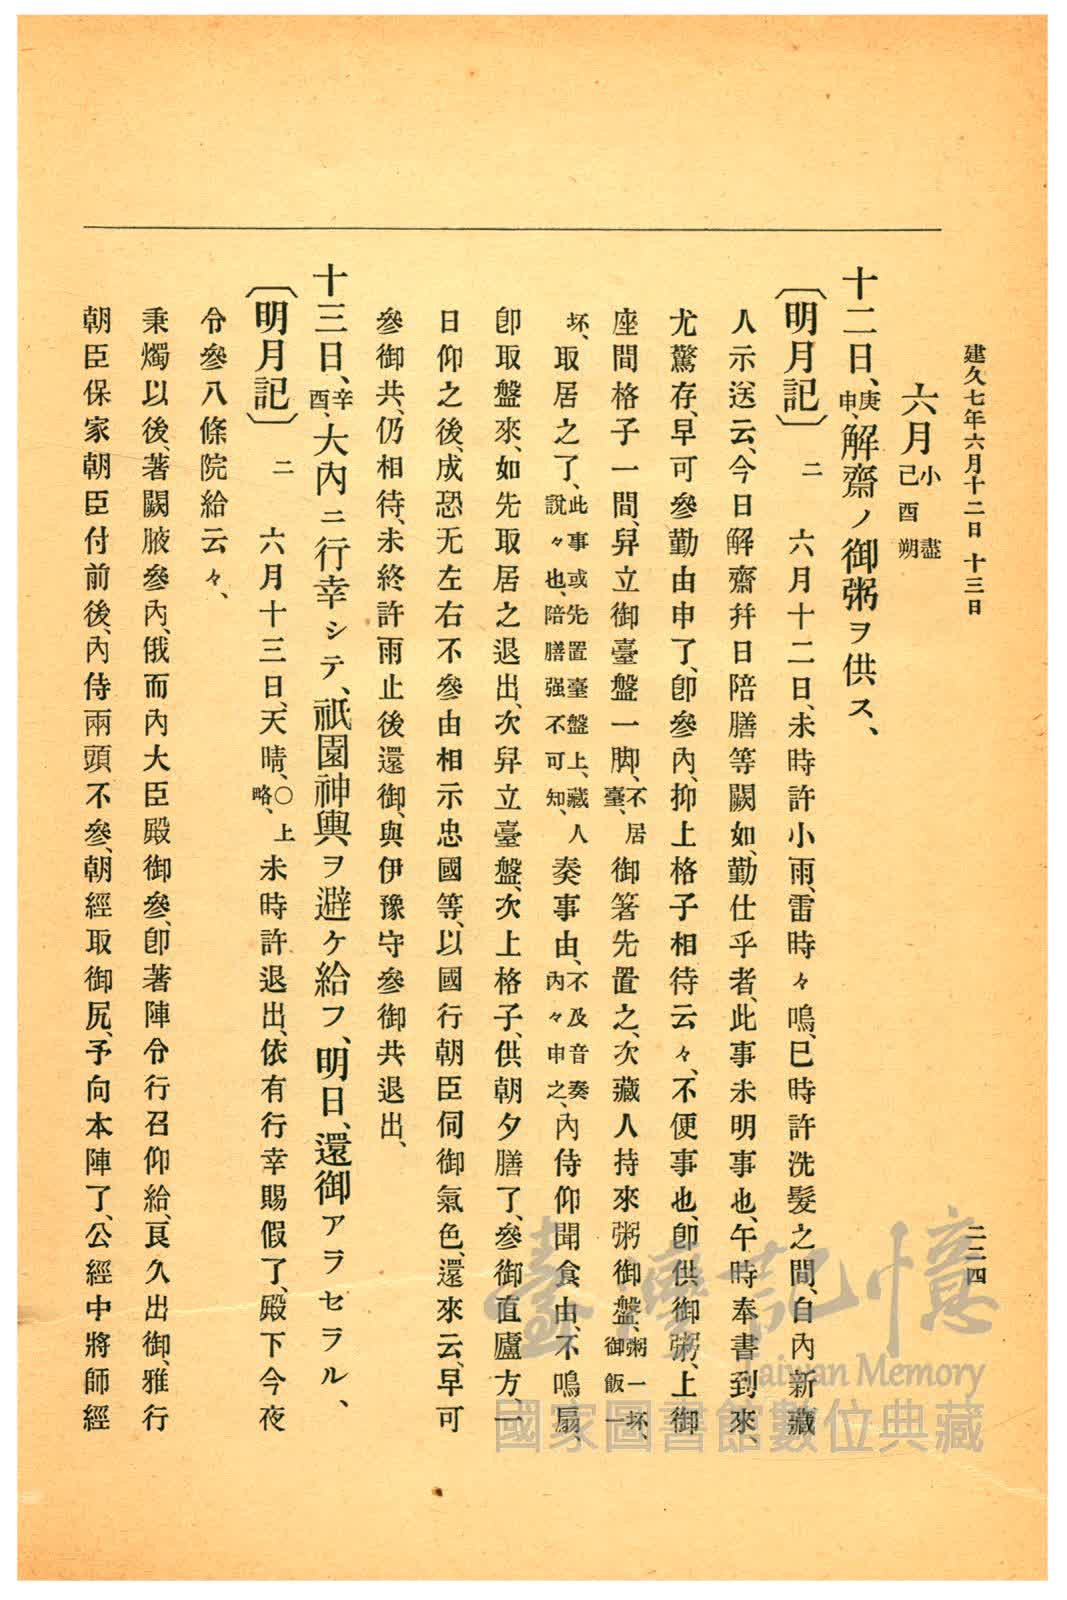 建久七年六月十二日 十三日
二二四
六月小盡己酉朔
十二日、庚申、解齋ノ御粥ヲ供ス、
〔明月記〕 二 六月十二日、未時許小雨、雷時々鳴、巳時許洗髮之間、自內新藏
人示送云、今日解齋幷日陪膳等闕如、勤仕乎者、此事未明事也、午時奉書到來、
尤驚存、早可參勤由申了、卽參內、抑上格子相待云々、不便事也、卽供御粥、上御
座間格子一間、舁立御臺盤一脚、不居臺、御箸先置之、次藏人持來粥御盤、粥一坏、御飯一
坏、取居之了、此事或先置臺盤上、藏人說々也、陪膳强不可知、奏事由、不及音奏內々申之、內侍仰聞食由、不鳴扇、
卽取盤來、如先取居之退出、次舁立臺盤、次上格子、供朝夕膳了、參御直廬方、一
日仰之後、成恐无左右不參由相示忠國等、以國行朝臣伺御氣色、還來云、早可
參御共、仍相待、未終許雨止後還御、與伊豫守參御共退出、
十三日、辛酉、大內ニ行幸シテ、祇園神輿ヲ避ケ給フ、明日、還御アラセラル、
〔明月記〕 二 六月十三日、天晴、○上略、未時許退出、依有行幸賜假了、殿下今夜
令參八條院給云々、
秉燭以後、著闕腋參內、俄而內大臣殿御參、卽著陣令行召仰給、良久出御、雅行
朝臣保家朝臣付前後、內侍兩頭不參、朝經取御尻、予向本陣了、公經中將師經
臺灣記憶
Taiwan Memory
國家圖書館數位典藏